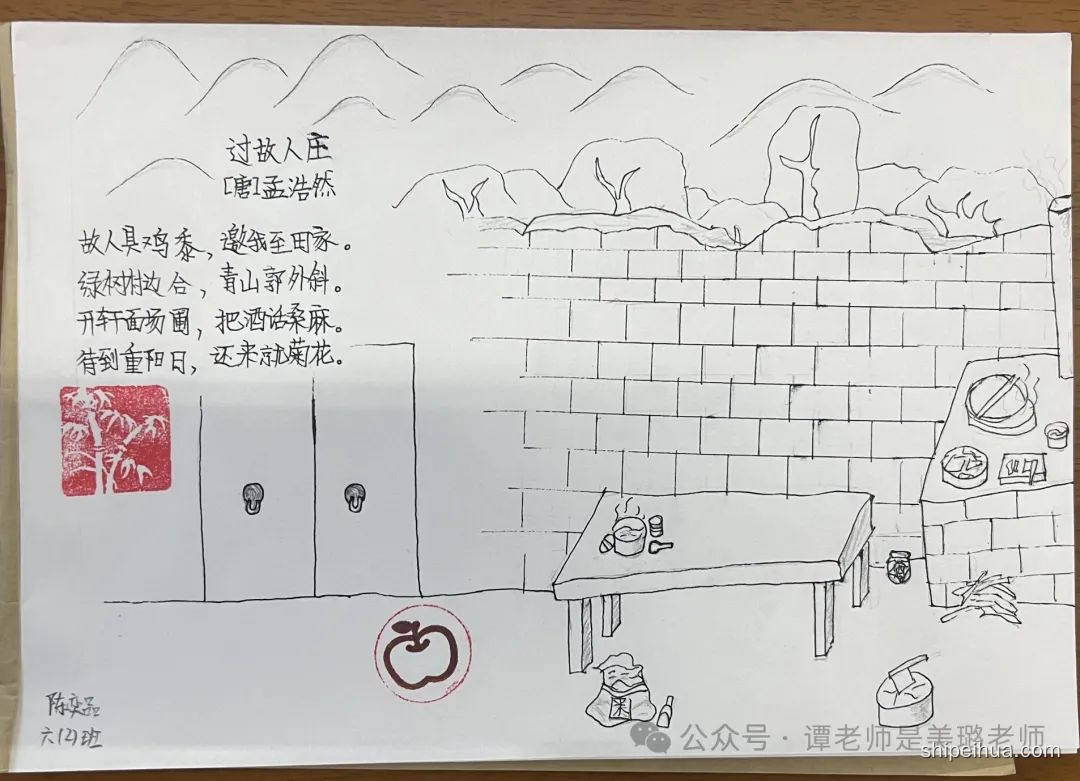 过故人庄
[唐]孟浩然
故人具鸡黍，邀我至田家。
绿树村边合，青山郭外斜。
开轩面场圃，把酒话桑麻。
待到重阳日，还来就菊花。
陈奕
六(2)班
公众号·谭老师是美璐老师
shipeihua.com